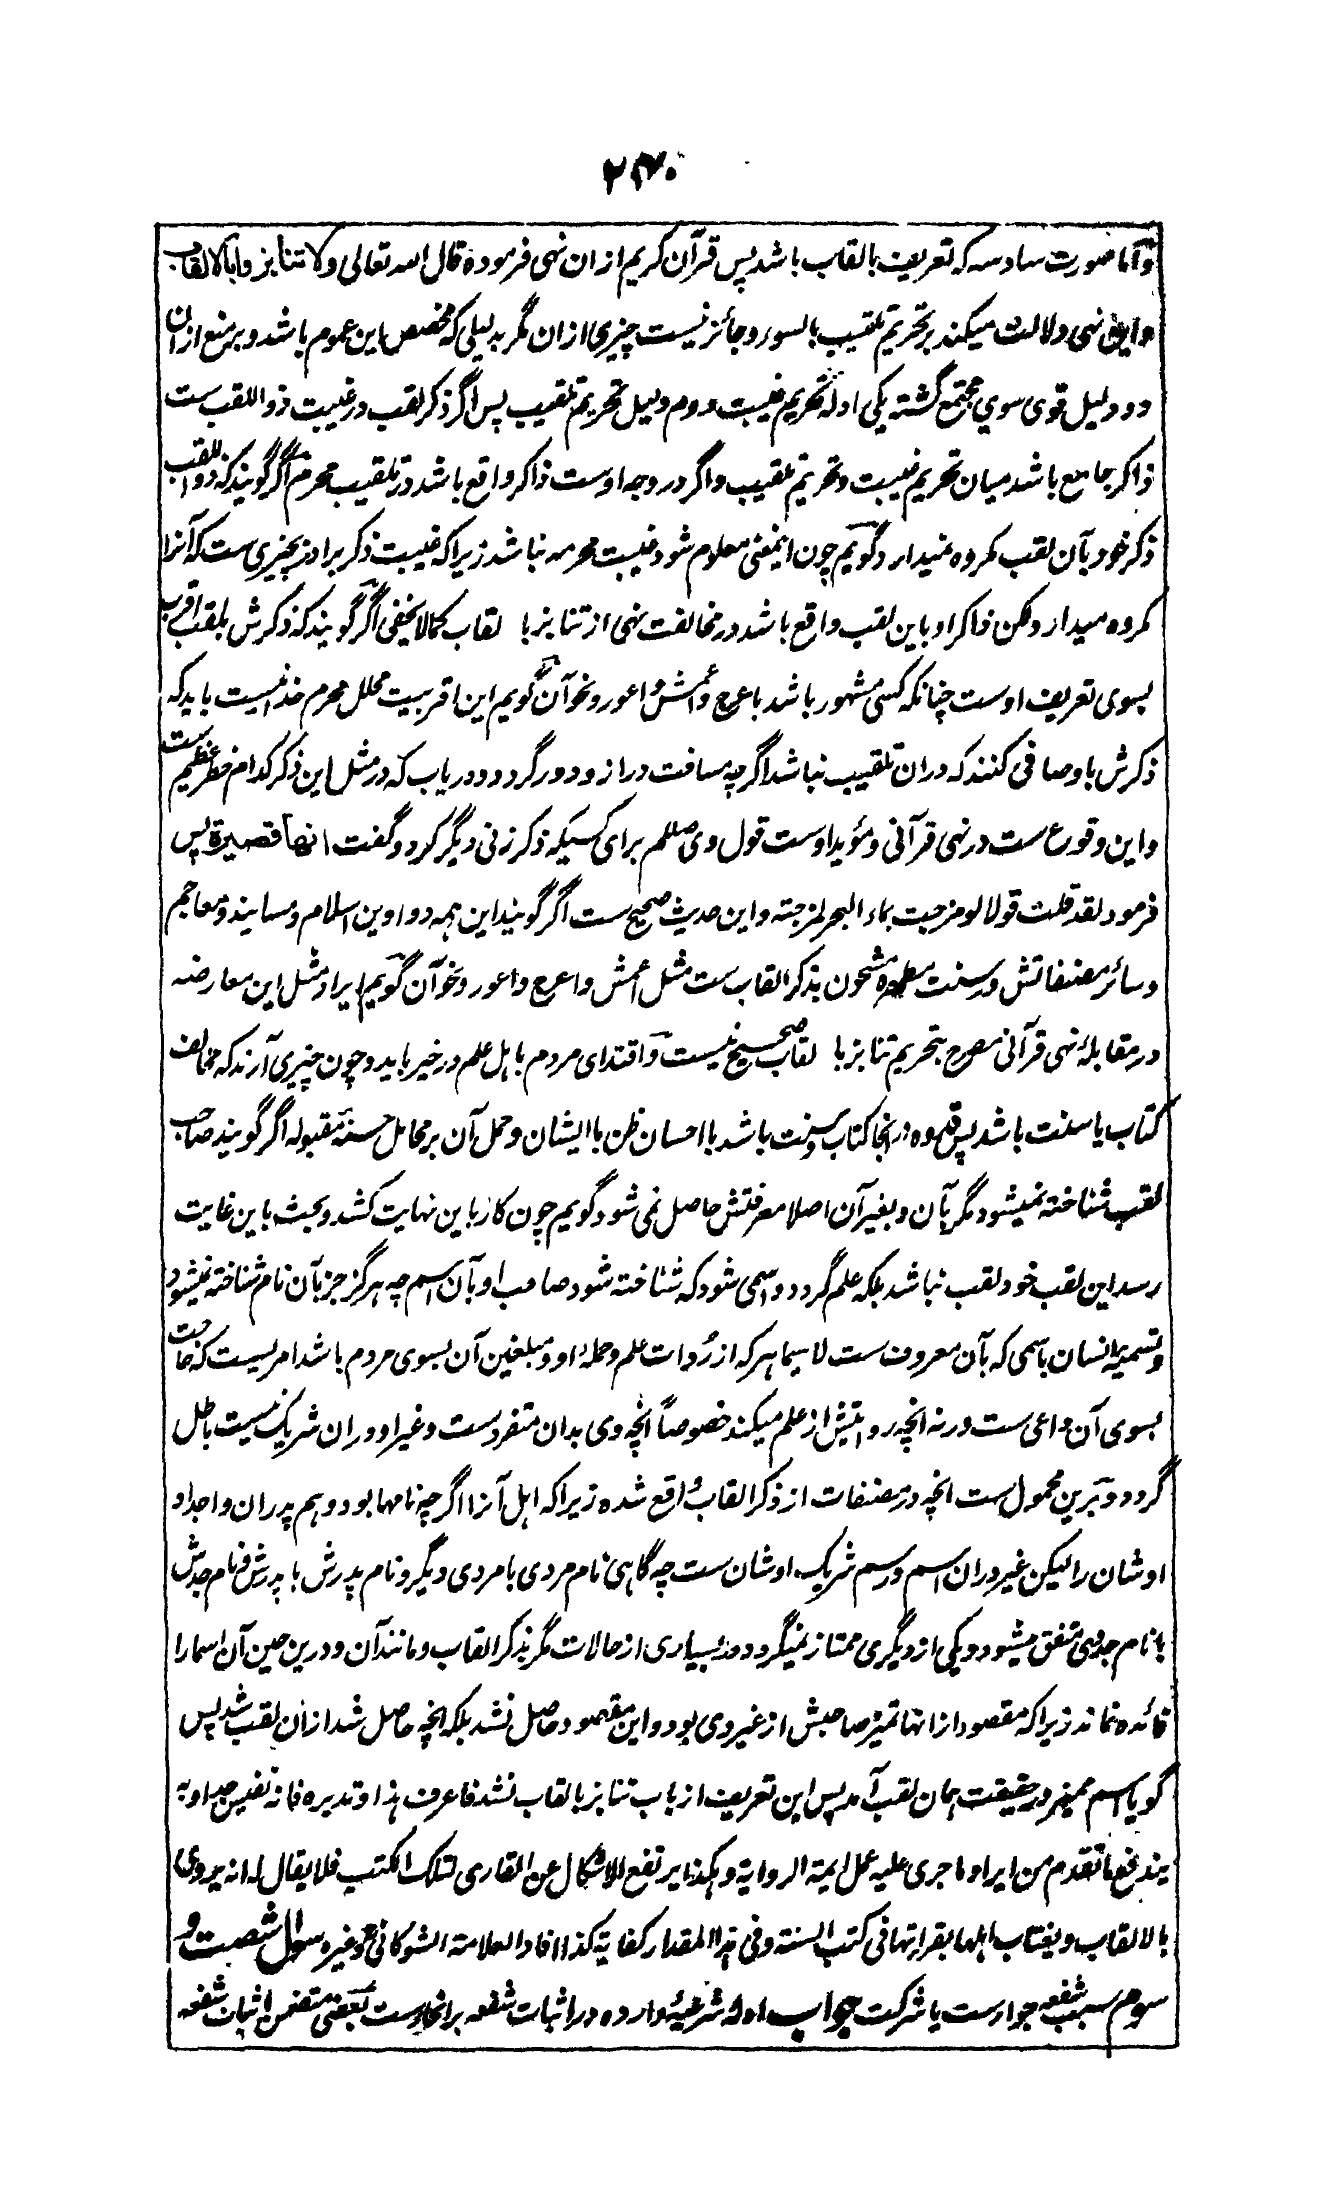 ۲۷۰
و اما صورت سادسه که تعریف بالقاب باشد پس قرآن کریم ازان نهی فرموده قال الله تعالی ولا تنابزوا بالالقاب
و این نهی دلالت میکند بر تحریم تلقیب بالسوء و جائز نیست چیزی ازان مگر بدلیلی که مخصص این عموم باشد و بر منع ازان
دو دلیل قوی سوی مجتمع گشته یکی ادله تحریم غیبت دوم دلیل تحریم تلقیب پس اگر ذکر لقب در غیبت ذو اللقب ست
ذاکر جامع باشد میان تحریم غیبت و تحریم تلقیب و اگر در وجه اوست ذاکر واقع باشد در تلقیب محرم اگر گویند که ذو اللقب
ذکر خود بآن لقب مکروه نمیدارد گویم چون اینمعنی معلوم شود غیبت محرمه نباشد زیرا که غیبت ذکر برادر بچیزی ست که آنرا
مکروه میدارد لکن ذاکر او باین لقب واقع باشد در مخالفت نهی از تنابز با لقاب کما لا یخفی اگر گویند که ذکرش بلقب اقرب
بسوی تعریف اوست چنانکه کسی مشهور باشد باعرج و اعمش و اعور و نحو آن گویم این اقربیت محلل محرم خدا نیست باید که
ذکرش باوصافی کنند که دران تلقیب نباشد اگرچه مسافت دراز و دور گردد و دریاب که در مثل این ذکر کدام خطر عظیم ست
و این وقوع ست در نهی قرآنی و مؤید اوست قول وی صللم برای کسیکه ذکر زنی دیگر کرد و گفت انها قصیرة پس
فرمود لقد قلت قولا لو مزجت بماء البحر لمزجته و این حدیث صحیح ست اگر گویند این همه دواوین اسلام و مسانید و معاجم
و سائر مصنفاتش در سنت مطهره مشحون بذکر القاب ست مثل اعمش و اعرج و اعور و نحو آن گویم ایراد مثل این معارضه
در مقابلۂ نهی قرآنی مصرح بتحریم تنابز با لقاب صحیح نیست و اقتدای مردم باهل علم در خیر باید و چون چیزی آرند که مخالف
کتاب یا سنت باشد پس قدوه درانجا کتاب و سنت باشد با احسان ظن با ایشان و حمل آن بر محامل حسنۂ مقبوله اگر گویند صاحب
لقب شناخته نمیشود مگر بآن و بغیر آن اصلا معرفتش حاصل نمی شود گویم چون کار باین نهایت کشد و بحث باین غایت
رسد این لقب خود لقب نباشد بلکه علم گردد و اسمی شود که شناخته شود صاحب او بآن اسم چه هرگز جز بآن نام شناخته نمیشود
و تسمیۂ انسان باسمی که بآن معروف ست لا سیما هر که از رُوات علم و حملۂ او و مبلغین آن بسوی مردم باشد امریست که حاجت
بسوی آن داعی ست ورنه انچه روایتش از علم میکند خصوصاً انچه وی بدان متفرد ست و غیر او دران شریک نیست باطل
گردد و برین محمول ست انچه در مصنفات از ذکر القاب واقع شده زیرا که اهل آنرا اگرچه نامها بود و هم پدران و اجداد
اوشان را لیکن غیر دران اسم و رسم شریک اوشان ست چه گاهی نام مردی با مردی دیگر و نام پدرش با پدرش و نام جدش
با نام جد وی متفق میشود و یکی از دیگری ممتاز نمیگردد در بسیاری از حالات مگر بذکر القاب و مانند آن و درین حین آن اسما را
فائده نماند زیرا که مقصود ازانها تمیز صاحبش از غیر وی بود و این مقصود حاصل نشد بلکه انچه حاصل شد ازان لقب شد پس
گویا اسم ممیز در حقیقت همان لقب آمد پس این تعریف از باب تنابز بالقاب نشد فاعرف هذا و تدبره فانه نفیس جدا و به
یندفع ما تقدم من ایراد ما جری علیه عمل ایمة الروایة و هکذا یرتفع الاشکال عن القاری لتلک الکتب فلا یقال له انه یروی
بالالقاب و یغتاب اهلها بقراءتها فی کتب السنة و فی هذا المقدار کفایة کذا افاد العلامة الشوکانی رح و غیره سوال شصت و
سوم سبب شفعه جوارست یا شرکت جواب ادلۂ شرعیۂ وارده در اثبات شفعه بر انحاءست بعضی متضمن اثبات شفعه